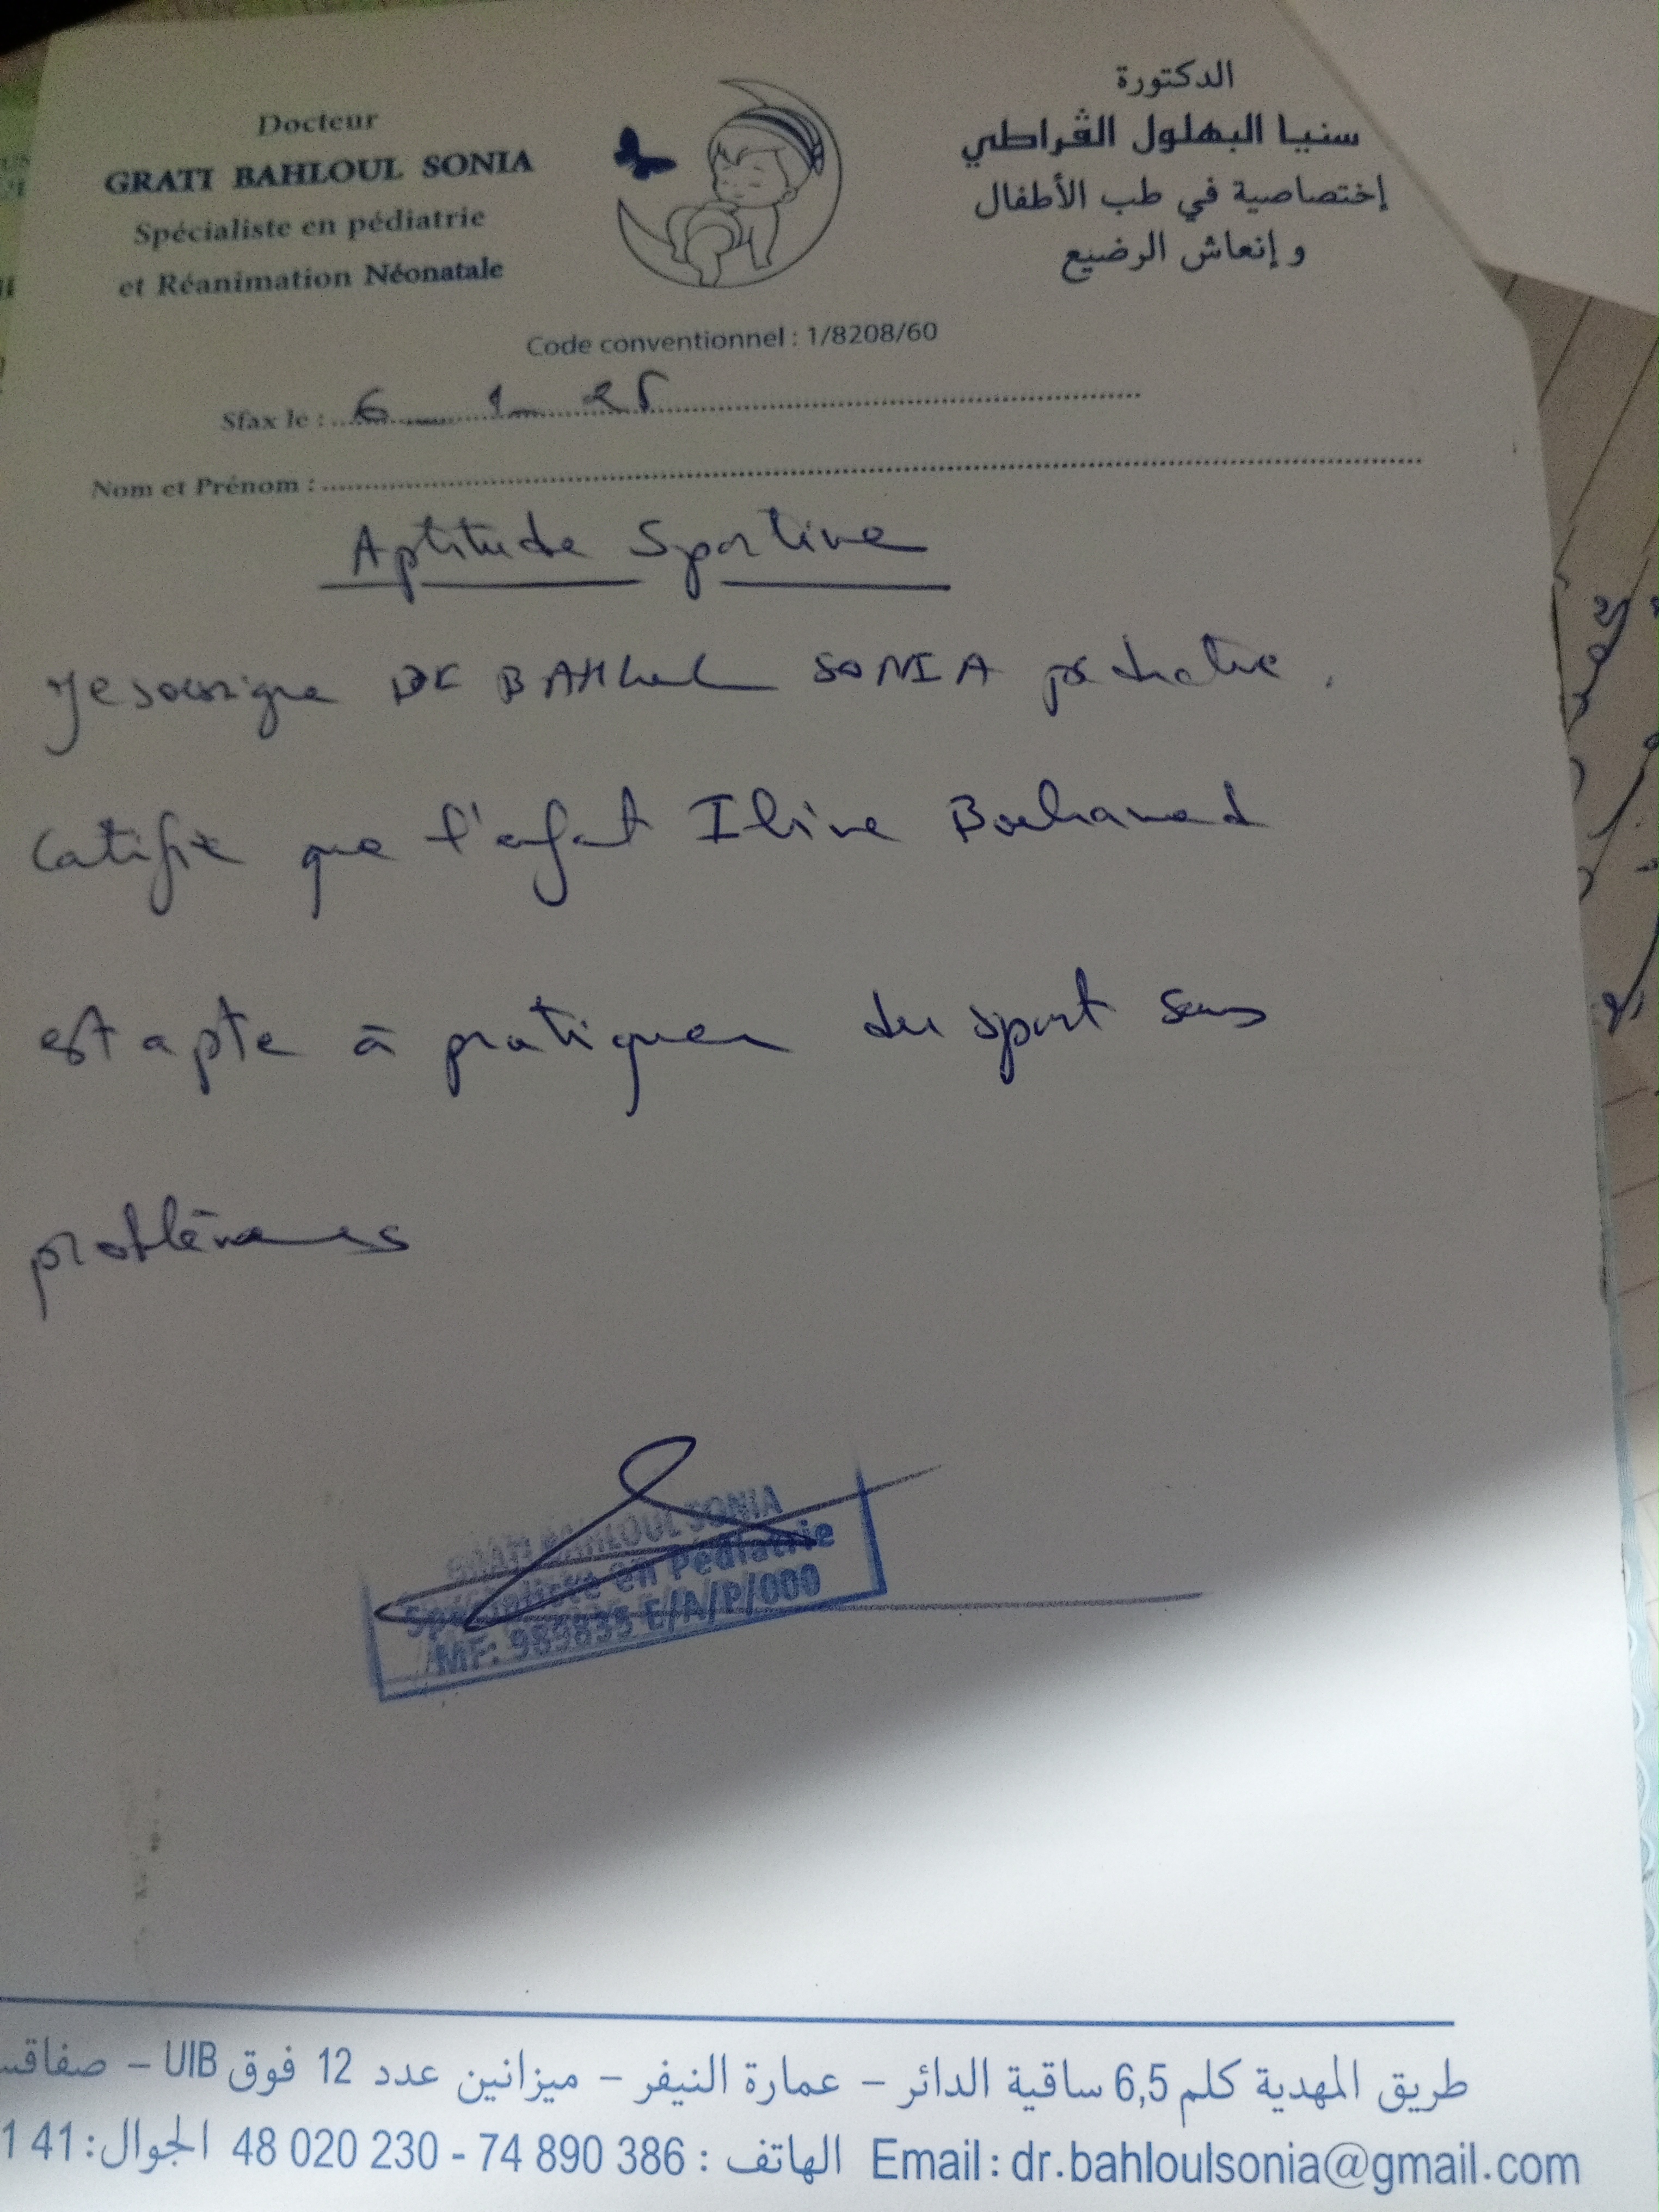 Docteur
GRATI BAHLOUL SONIA
Spécialiste en pédiatrie
et Réanimation Néonatale
الدكتورة
سنيا البهلول الڤراطي
إختصاصية في طب الأطفال
و إنعاش الرضيع
Code conventionnel : 1/8208/60
Sfax le : 6 1 25
Nom et Prénom :
Aptitude Sportive
Je soussigne Dr BAHloul SONIA pédiatre.
Certifie que l'enfant Iline
est apte à pratiquer du sport sans
problèmes
GRATI BAHLOUL SONIA
Spécialiste en Pédiatrie
MF: 989835 E/A/P/000
طريق المهدية كلم 6,5 ساقية الدائر – عمارة النيفر – ميزانين عدد 12 فوق UIB – صفاقس
Email : dr.bahloulsonia@gmail.com الهاتف : 74 890 386 - 48 020 230 الجوال: 41 1